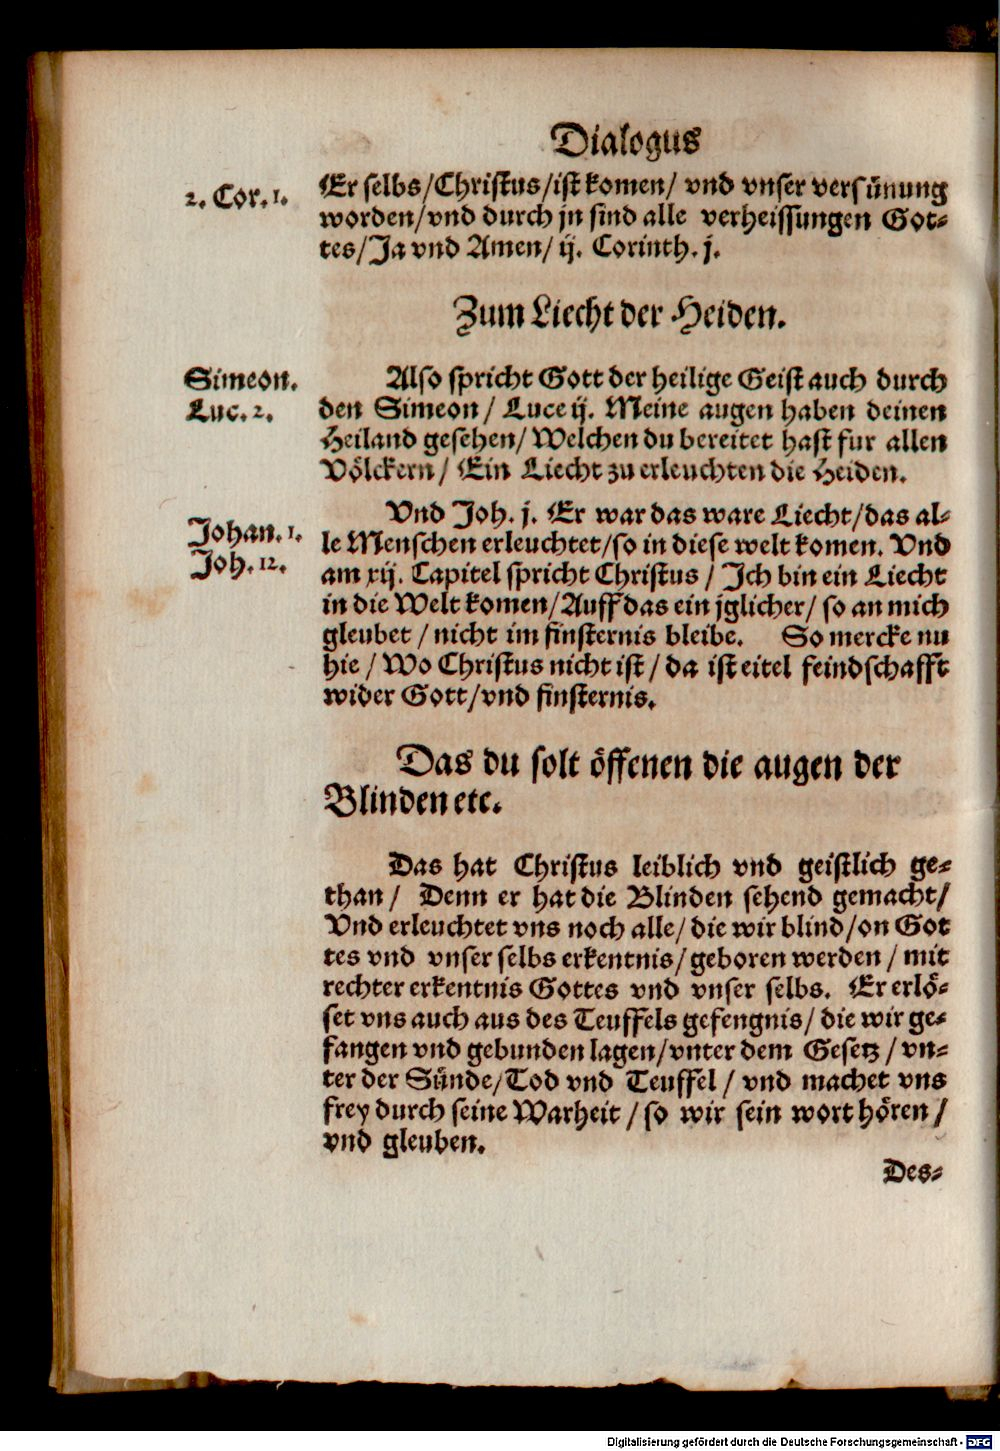 Dialogus
2. Cor. 1.
Er selbs/Christus/ist komen/ vnd vnser versünung
worden/vnd durch jn sind alle verheissungen Got-
tes/Ja vnd Amen/ ij. Corinth. j.
Zum Liecht der Heiden.
Simeon.
Luc. 2.
Also spricht Gott der heilige Geist auch durch
den Simeon/ Luce ij. Meine augen haben deinen
Heiland gesehen/ Welchen du bereitet hast fur allen
Völckern/ Ein Liecht zu erleuchten die Heiden.
Johan. 1.
Joh. 12.
Vnd Joh. j. Er war das ware Liecht/das al-
le Menschen erleuchtet/so in diese welt komen. Vnd
am xij. Capitel spricht Christus/ Ich bin ein Liecht
in die Welt komen/Auff das ein jglicher/ so an mich
gleubet/ nicht im finsternis bleibe. So mercke nu
hie/ Wo Christus nicht ist/ da ist eitel feindschafft
wider Gott/vnd finsternis.
Das du solt öffenen die augen der
Blinden etc.
Das hat Christus leiblich vnd geistlich ge-
than/ Denn er hat die Blinden sehend gemacht/
Vnd erleuchtet vns noch alle/ die wir blind/on Got
tes vnd vnser selbs erkentnis/ geboren werden/ mit
rechter erkentnis Gottes vnd vnser selbs. Er erlö-
set vns auch aus des Teuffels gefengnis/ die wir ge-
fangen vnd gebunden lagen/vnter dem Gesetz/ vn-
ter der Sünde/Tod vnd Teuffel/ vnd machet vns
frey durch seine Warheit/ so wir sein wort hören/
vnd gleuben.
Des-
Digitalisierung gefördert durch die Deutsche Forschungsgemeinschaft - DFG